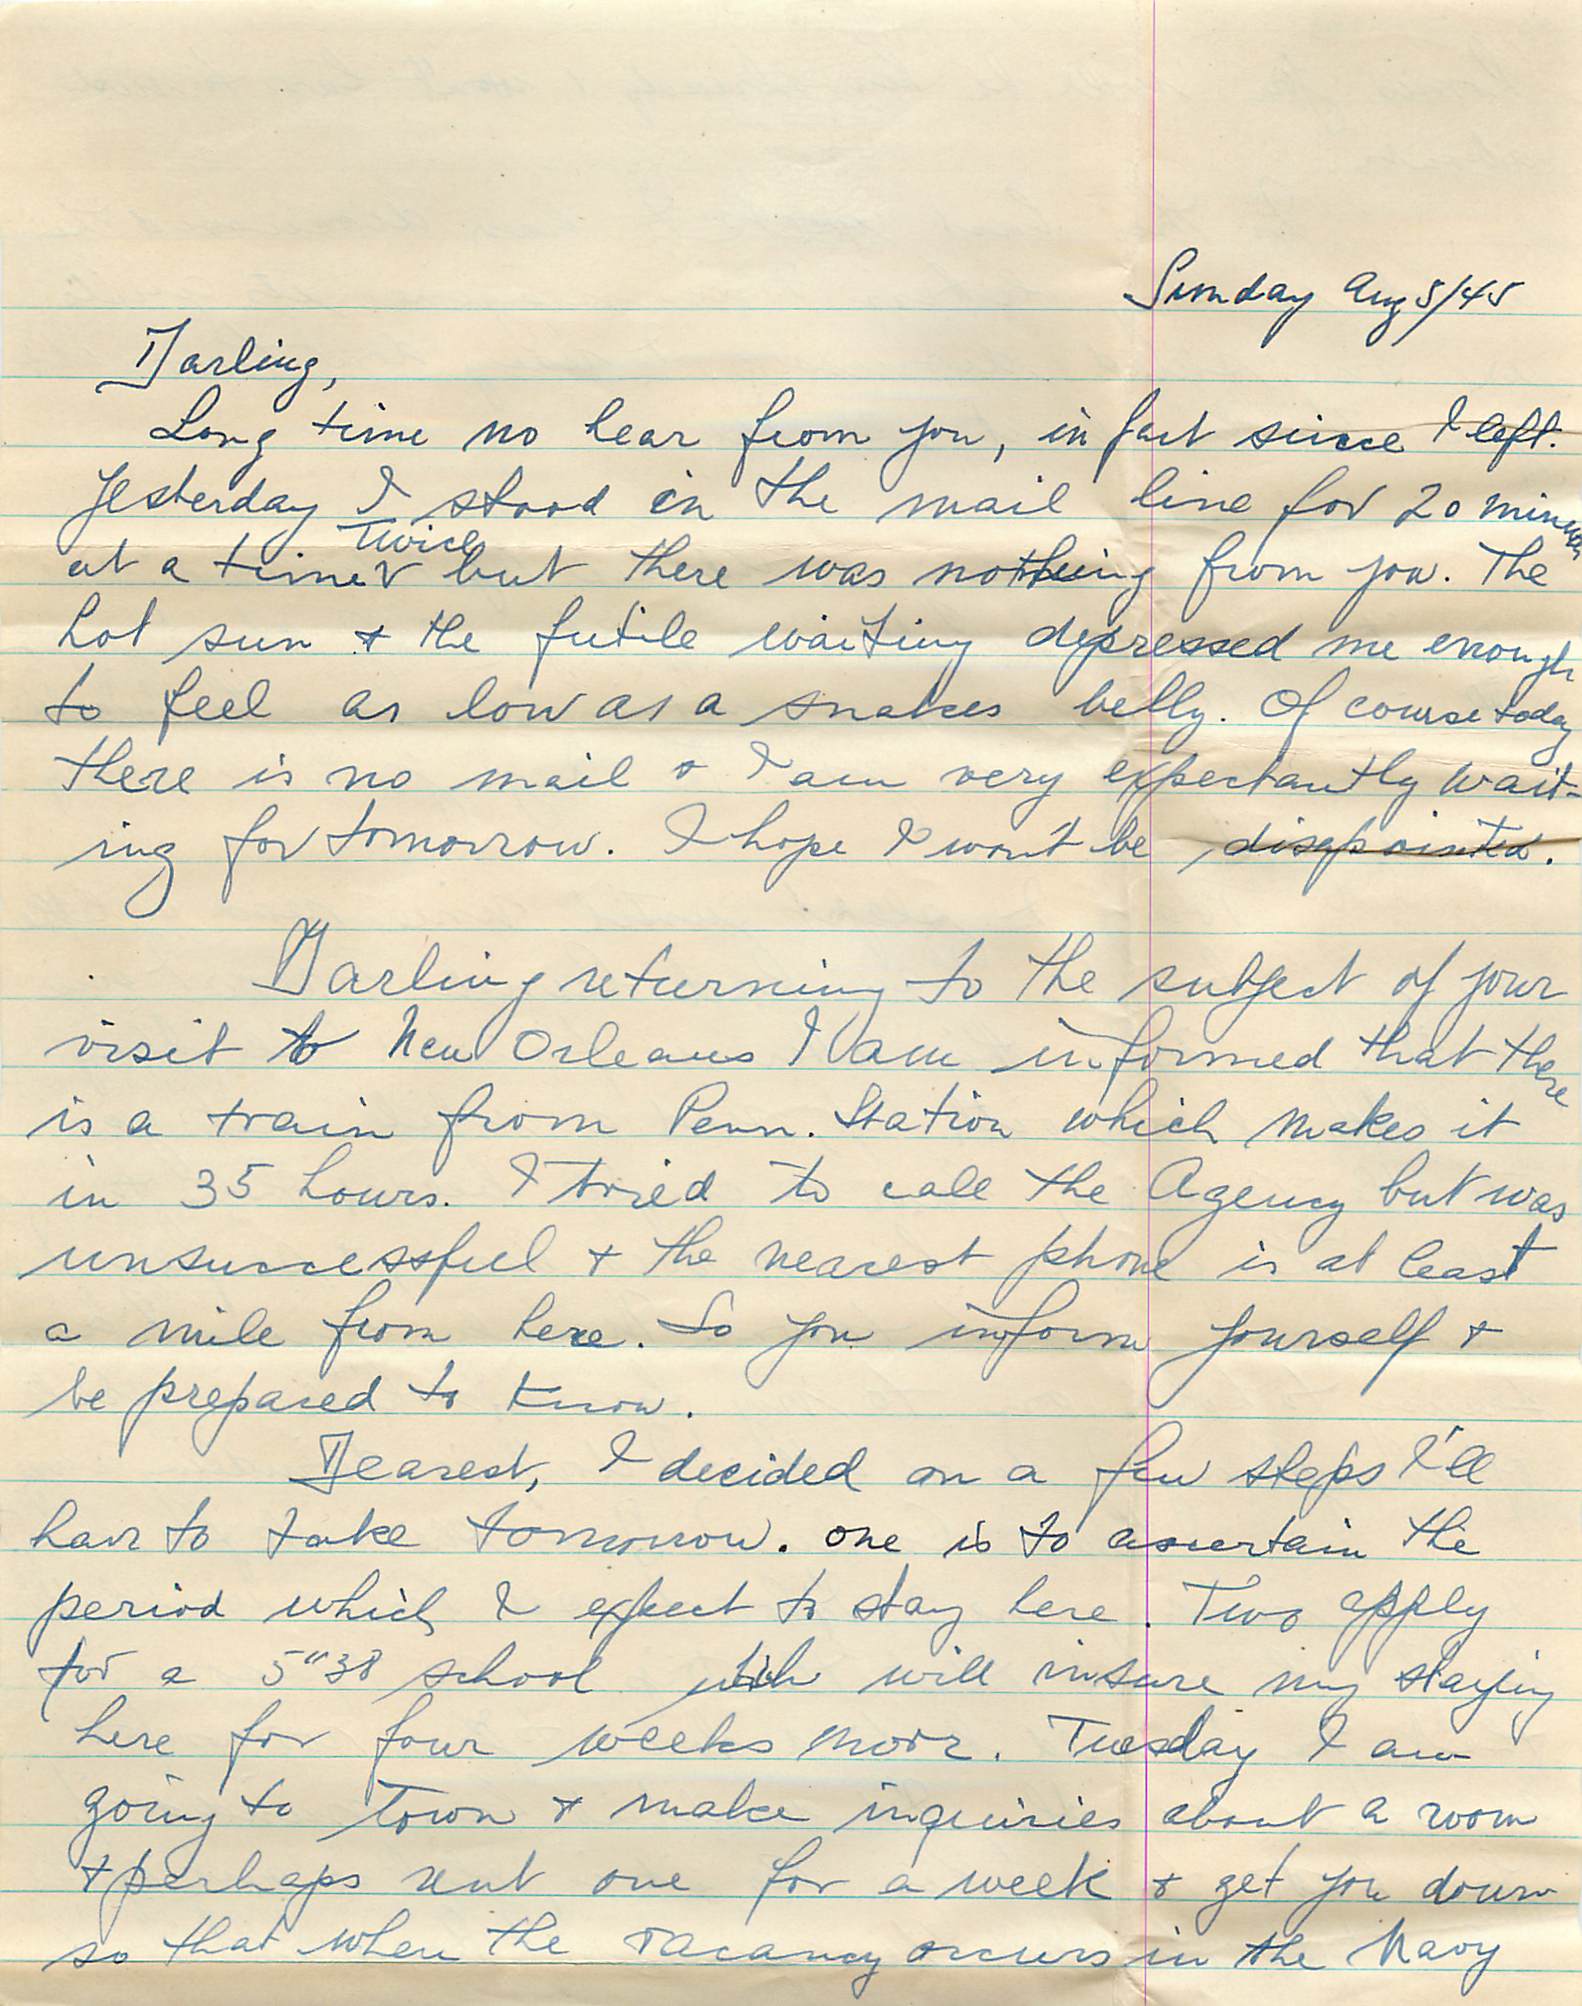 Sunday Aug 5/45
Darling,
Long time no hear from you, in fact since I left.
Yesterday I stood in the mail line for 20 minutes
Twice
at a time but there was nothing from you. The
hot sun + the futile waiting depressed me enough
to feel as low as a snakes belly. Of course today
there is no mail + I am very expectantly wait-
ing for tomorrow. I hope I won't be disappointed.
Darling returning to the subject of your
visit to New Orleans I am informed that there
is a train from Penn. Station which makes it
in 35 hours. I tried to call the Agency but was
unsuccessful + the nearest phone is at least
a mile from here. So you inform yourself +
be prepared to know.
Dearest, I decided on a few steps I'll
have to take tomorrow. One is to ascertain the
period which I expect to stay here. Two apply
for a 5"38 school which will insure my staying
here for four weeks more. Tuesday I am
going to Town + make inquiries about a room
+ perhaps rent one for a week + get you down
so that when the vacancy occurs in the Navy